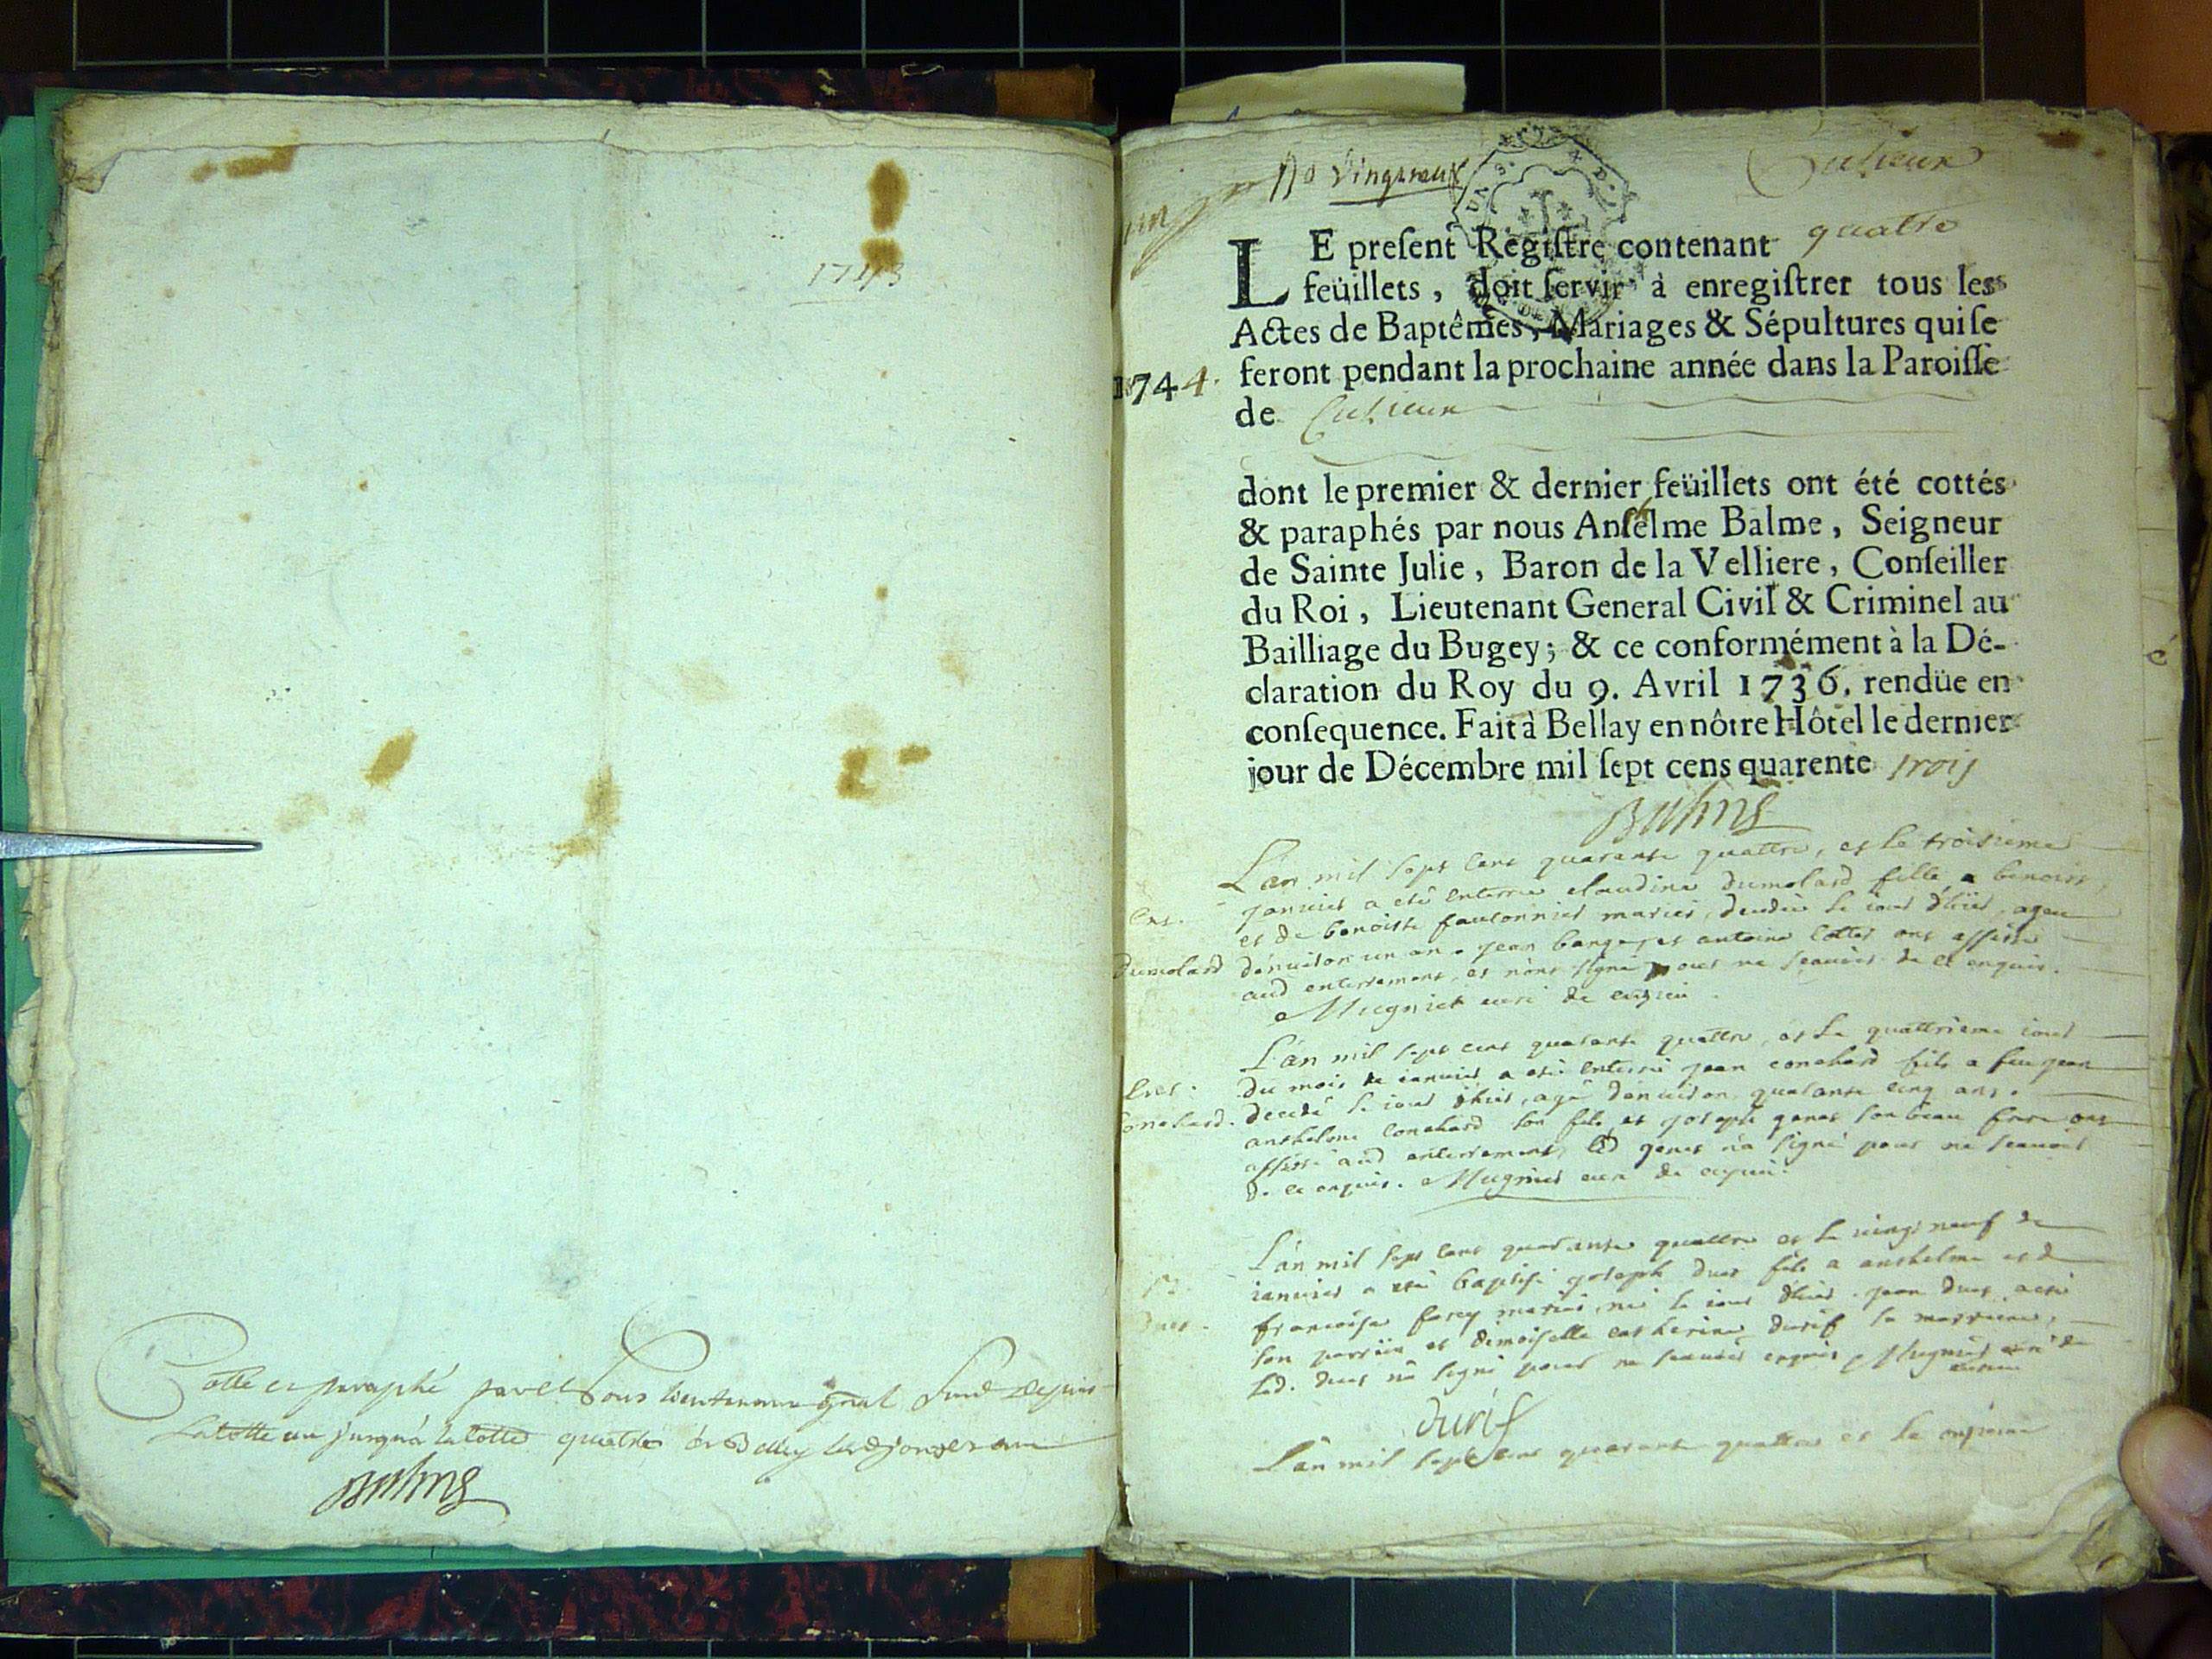 1743
Cotte et paraphé par et Sous lieutenant gnal Susd depuis
la cotte un jusqu'a la cotte quatre à Belley lesd jour et an
Balme
No Vingtneux
Cusieux
LE preſent Regiſtre contenant quatre
feüillets, doit ſervir à enregiſtrer tous les
Actes de Baptêmes, Mariages & Sépultures qui ſe
1744. feront pendant la prochaine année dans la Paroiſſe
de Cusieux
dont le premier & dernier feüillets ont été cottés
& paraphés par nous Anſelme Balme, Seigneur
de Sainte Julie, Baron de la Velliere, Conſeiller
du Roi, Lieutenant General Civil & Criminel au
Bailliage du Bugey; & ce conformément à la Dé-
claration du Roy du 9. Avril 1736. rendüe en
conſequence. Fait à Bellay en nôtre Hôtel le dernier
jour de Décembre mil ſept cens quarente trois
Balme
L'an mil sept cent quarante quattre, et le troisieme
Ent. janvier a eté enterrée claudine dumolard fille a benoist
et de benoiste fauconnier mariés, decedée le jour d'hier, agee
Dumolard d'environ un an. jean et antoine cottet ont assisté
aud enterrement, et n'ont signé pour ne scavoir de ce enquis.
Mugnier curé de
L'an mil sept cent quarante quattre, et le quattrieme jour
Ent. du mois de janvier a eté enterré jean conchard fils a feu jean
Conchard. decedé le jour d'hier, agé d'environ quarante cinq ans.
anthelme conchard son fils, et joseph genet son beau frere ont
assisté aud enterrement, led genet n'a signé pour ne scavoir
de ce enquis. Mugnier curé de
L'an mil sept cent quarante quattre et le vingt neuf de
janvier a eté baptisé joseph duet fils a anthelme et de
Duet. francoise mariés, né le jour d'hier. jean duet a eté
son parrain et demoiselle catherine durif sa marraine,
led. duet n'a signé pour ne scavoir enquis Mugnier curé de
durif
L'an mil sept cent quarante quattre et le onzieme